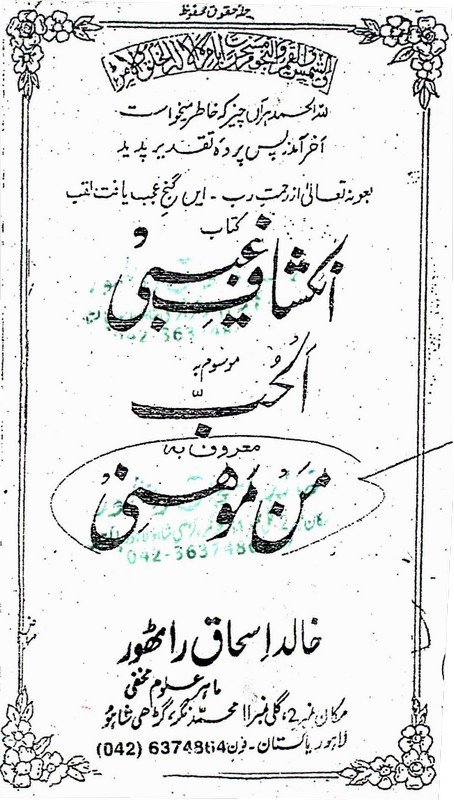 جملہ حقوق محفوظ
والشمس والقمر والنجوم مسخرات بامرہ الا لہ الخلق والامر
للہ الحمد ہر آں چیز کہ خاطر میخواست
آخر آمد ز پس پردہ تقدیر پدید
بعونہ تعالیٰ از رحمت رب - ایں گنج عجب یافت لقب
کتاب
انکشاف غیبی
موسوم بہ
الحُبّ
معروف بہ
مَن مَوہنی
042-3637486
خالد اسحاق راٹھور
ماہر علوم مخفی
مکان نمبر 2، گلی نمبر 11 محمد نگر، گڑھی شاہو
لاہور پاکستان - فون 6374864 (042)